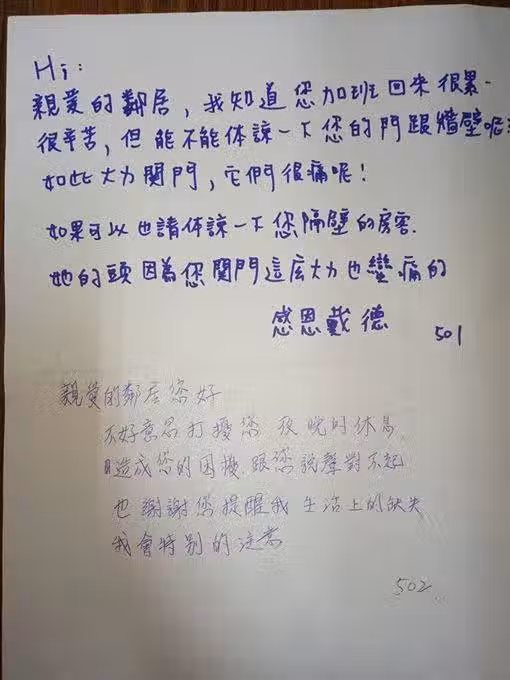 Hi:
親愛的鄰居，我知道您加班回來很累、
很辛苦，但能不能体諒一下您的門跟牆壁呢？
如此大力關門，它們很痛呢！
如果可以也請体諒一下您隔壁的房客.
她的頭因為您關門這庅大力也蠻痛的
感恩戴德
501
親愛的鄰居您好
不好意思打擾您 夜晚的休息
造成您的困擾 跟您說聲對不起
也謝謝您提醒我 生活上的缺失
我會特別的注意
502